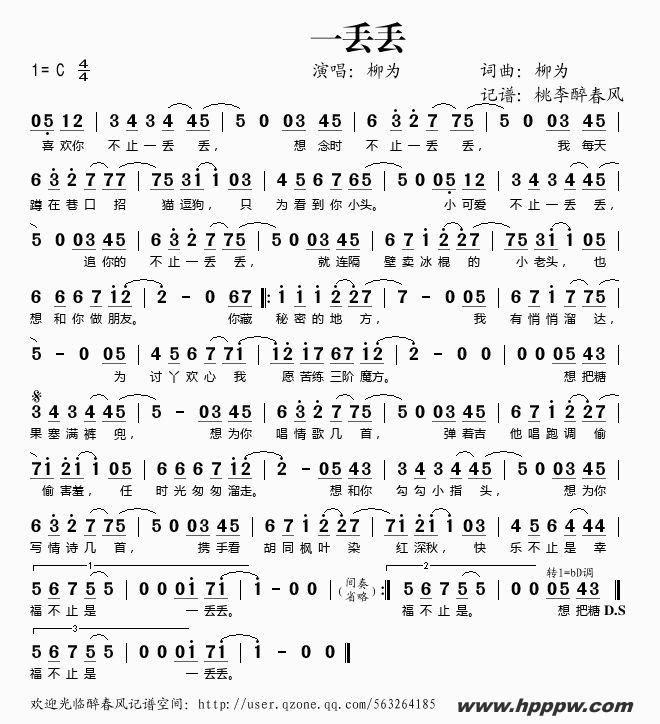 一丢丢
1= C 4/4 演唱: 柳为 词曲: 柳为
记谱: 桃李醉春风
05 12 | 3 4 3 4 45 | 5 0 03 45 | 6 3 2 7 75 | 5 0 03 45 |
喜欢你 不止一丢丢, 想 念时 不止一丢丢, 我 每天
6 3 2 7 77 | 75 31 1 03 | 4 5 6 7 65 | 5 0 05 45 | 3 4 3 4 45 |
蹲在巷口招 猫逗狗, 只 为看到你小头。 小可爱 不止一丢丢,
5 0 03 45 | 6 3 2 7 75 | 5 0 03 45 | 6 7 1 2 27 | 75 31 1 05 |
追你的 不止一丢丢, 就连隔 壁卖冰棍的 小老头, 也
6 6 6 7 12 | 2 - 0 67 ‖: 1 1 1 2 27 | 7 - 0 05 | 6 7 1 7 75 |
想和你做朋友。 你藏 秘密的地方, 我 有悄悄溜达,
5 - 0 05 | 4 5 6 7 71 | 12 17 67 12 | 2 - 0 0 | 0 0 05 43 |
为 讨丫欢心我 愿苦练三阶魔方。 想把糖
3 4 3 4 45 | 5 - 03 45 | 6 3 2 7 75 | 5 0 03 45 | 6 7 1 2 27 |
果塞满裤兜, 想为你 唱情歌几首, 弹着吉 他唱跑调偷
71 21 1 05 | 6 6 6 7 12 | 2 - 05 43 | 3 4 3 4 45 | 5 0 03 45 |
偷害羞, 任 时光匆匆溜走。 想和你 勾勾小指头, 想为你
6 3 2 7 75 | 5 0 03 45 | 6 7 1 2 27 | 71 21 1 03 | 4 5 6 4 |
写情诗几首, 携手看 胡同枫叶染 红深秋, 快 乐不止是幸
1 2 转1=bD调
5 6 7 5 5 | 0 0 01 71 | 1 - 0 0 | (间奏省略) :‖ 5 6 7 5 5 | 0 0 05 43 ‖
福不止是 一丢丢。 福不止是。 想把糖 D.S
3
5 6 7 5 5 | 0 0 01 71 | 1 - 0 0 ‖
福不止是 一丢丢。
欢迎光临醉春风记谱空间: http://user.qzone.qq.com/563264185
www.hppw.com